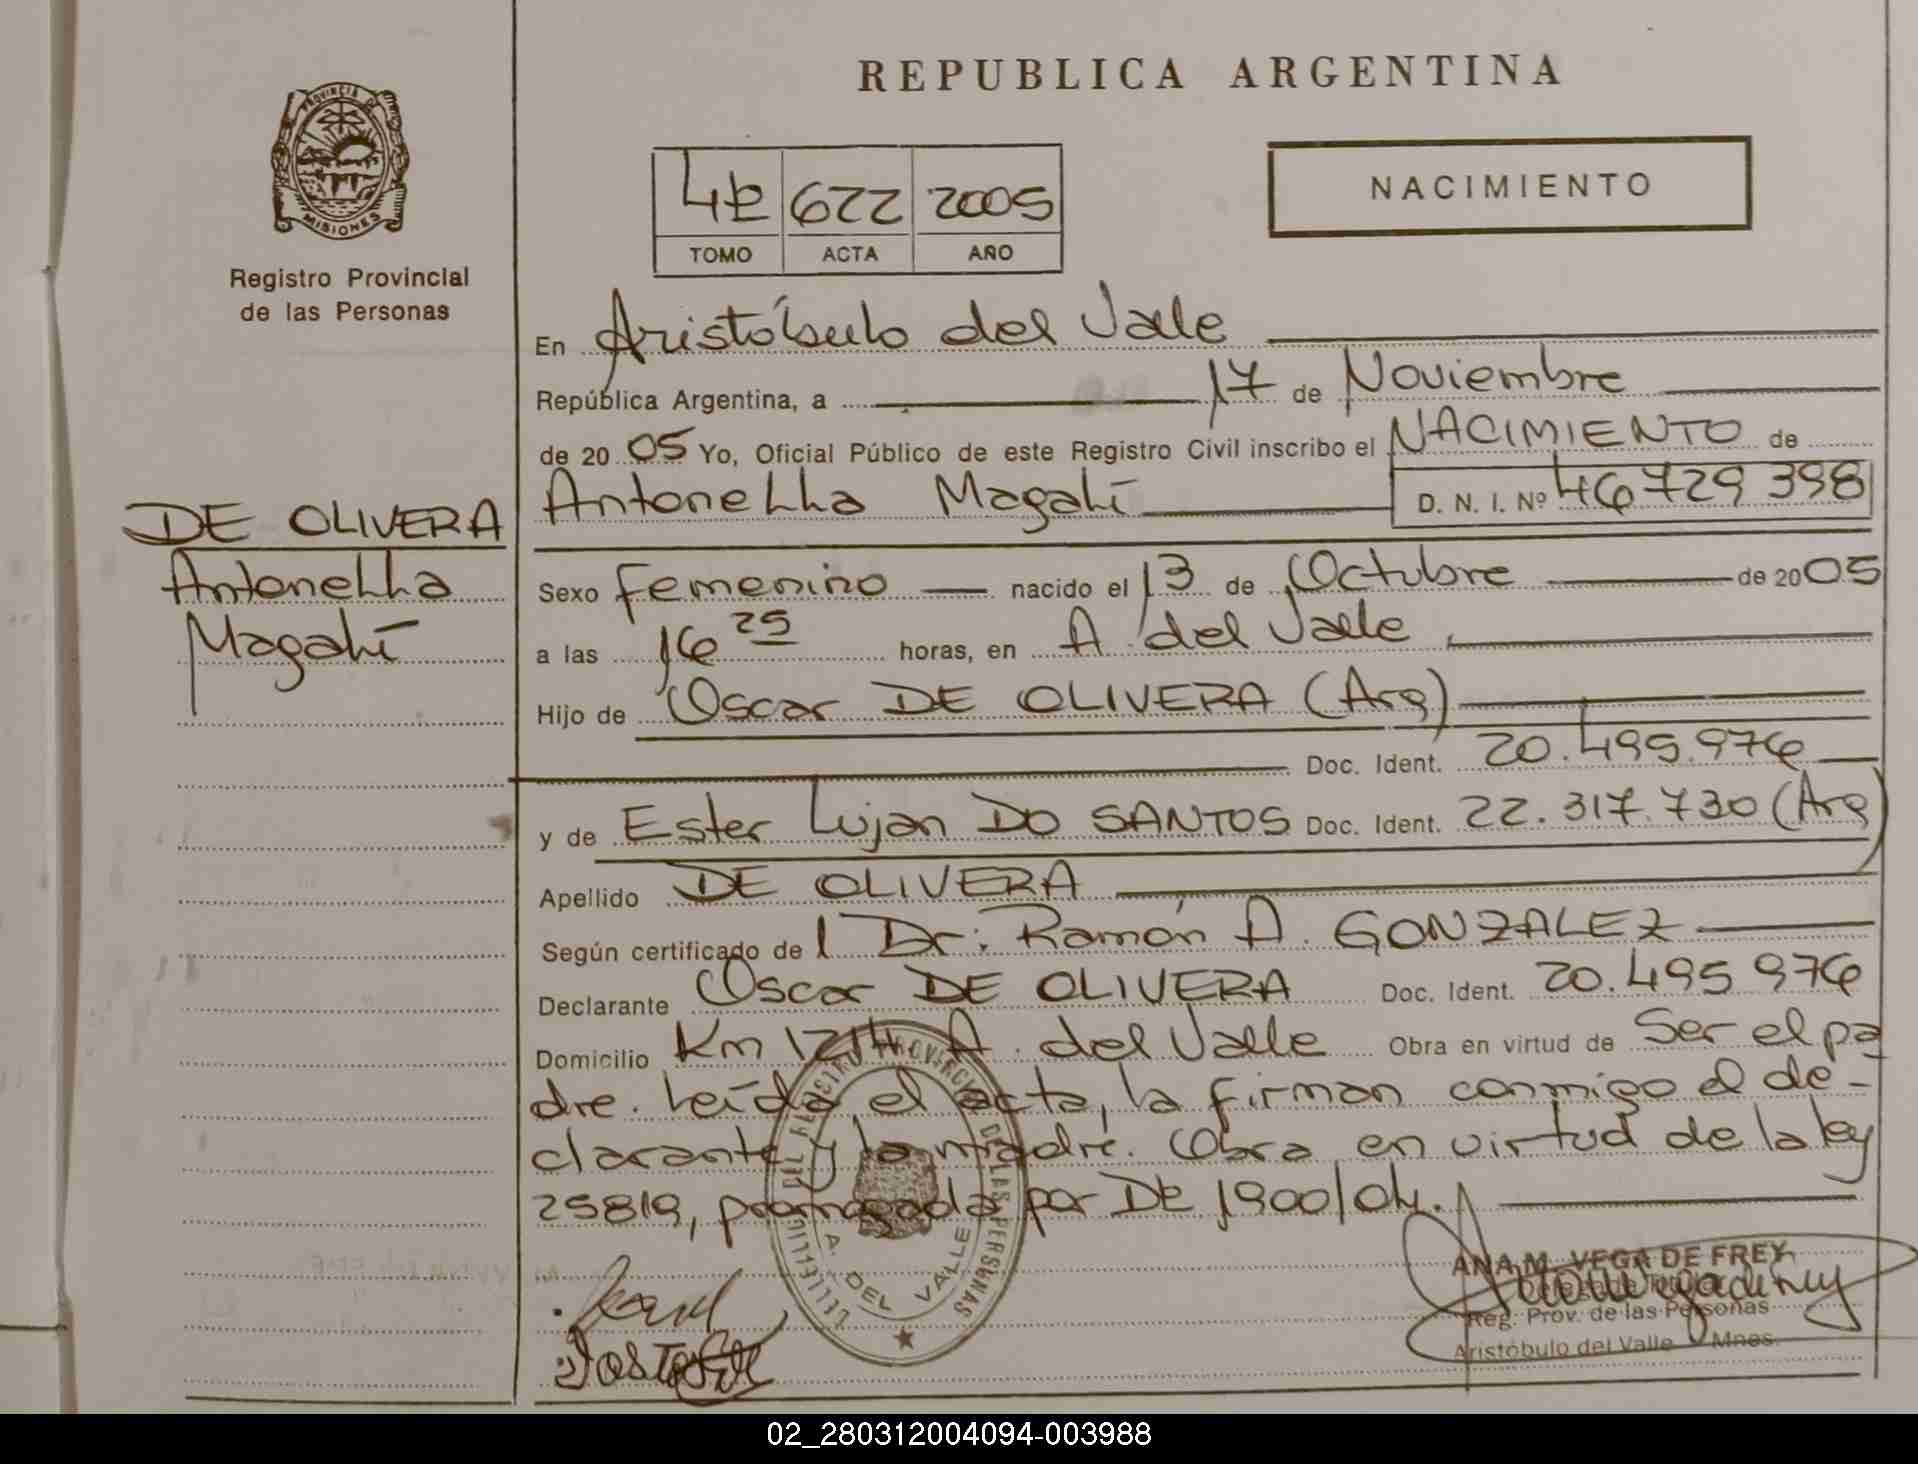 REPUBLICA ARGENTINA
PROVINCIA DE
MISIONES
Registro Provincial
de las Personas
4º 622 2005
TOMO ACTA AÑO
NACIMIENTO
En Aristóbulo del Valle
República Argentina, a 17 de Noviembre
de 20 05 Yo, Oficial Público de este Registro Civil inscribo el NACIMIENTO de
Antonella Magalí D. N. I. Nº 46729 398
DE OLIVERA
Antonella
Magalí
Sexo femenino nacido el 13 de Octubre de 20 05
a las 16 25 horas, en A. del Valle
Hijo de Oscar DE OLIVERA (Arg)
Doc. Ident. 20.495.976
y de Ester Lujan DO SANTOS Doc. Ident. 22.317.730 (Arg)
Apellido DE OLIVERA
Según certificado de l Dr. Ramón A. GONZALEZ
Declarante Oscar DE OLIVERA Doc. Ident. 20.495 976
Domicilio Km 1214 A. del Valle Obra en virtud de Ser el pa
dre. Leída el acta, la firman conmigo el de-
clarante y la madre. Obra en virtud de la ley
25819, prorrogada por DE 1900/04.
DEL REGISTRO PROVINCIAL DE LAS PERSONAS
A. DEL VALLE
ANA M. VEGA DE FREY
Reg. Prov. de las Personas
Aristóbulo del Valle Mnes.
02_280312004094-003988